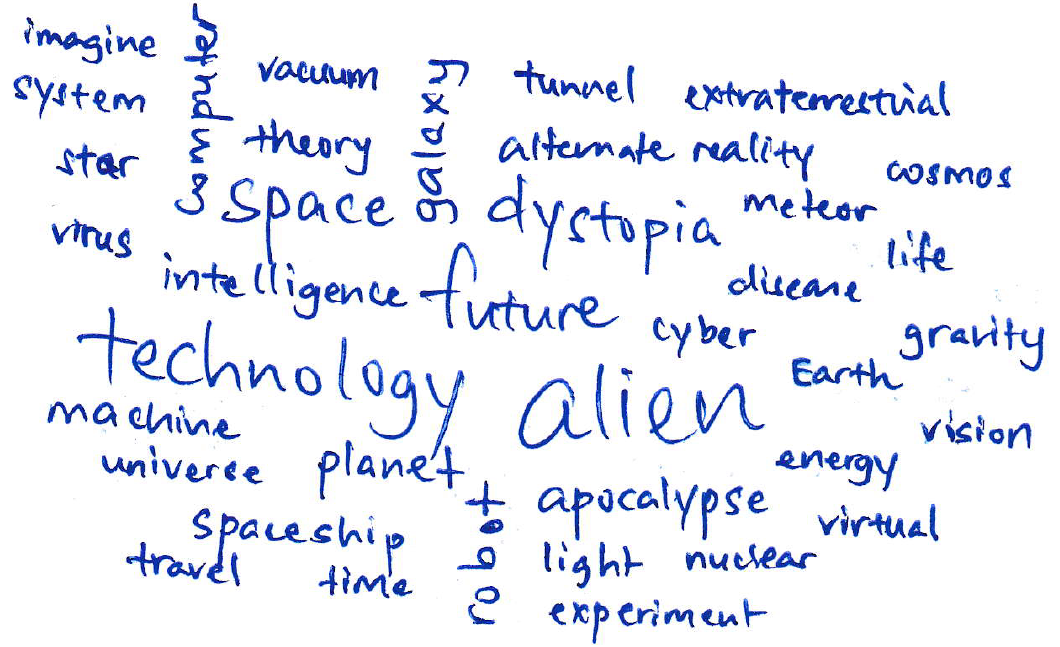 imagine
computer
vacuum
galaxy
tunnel
extraterrestrial
system
theory
alternate reality
cosmos
star
space
dystopia
meteor
virus
life
intelligence
future
disease
cyber
gravity
technology
alien
Earth
machine
vision
universe
planet
energy
robot
apocalypse
virtual
spaceship
light
nuclear
travel
time
experiment